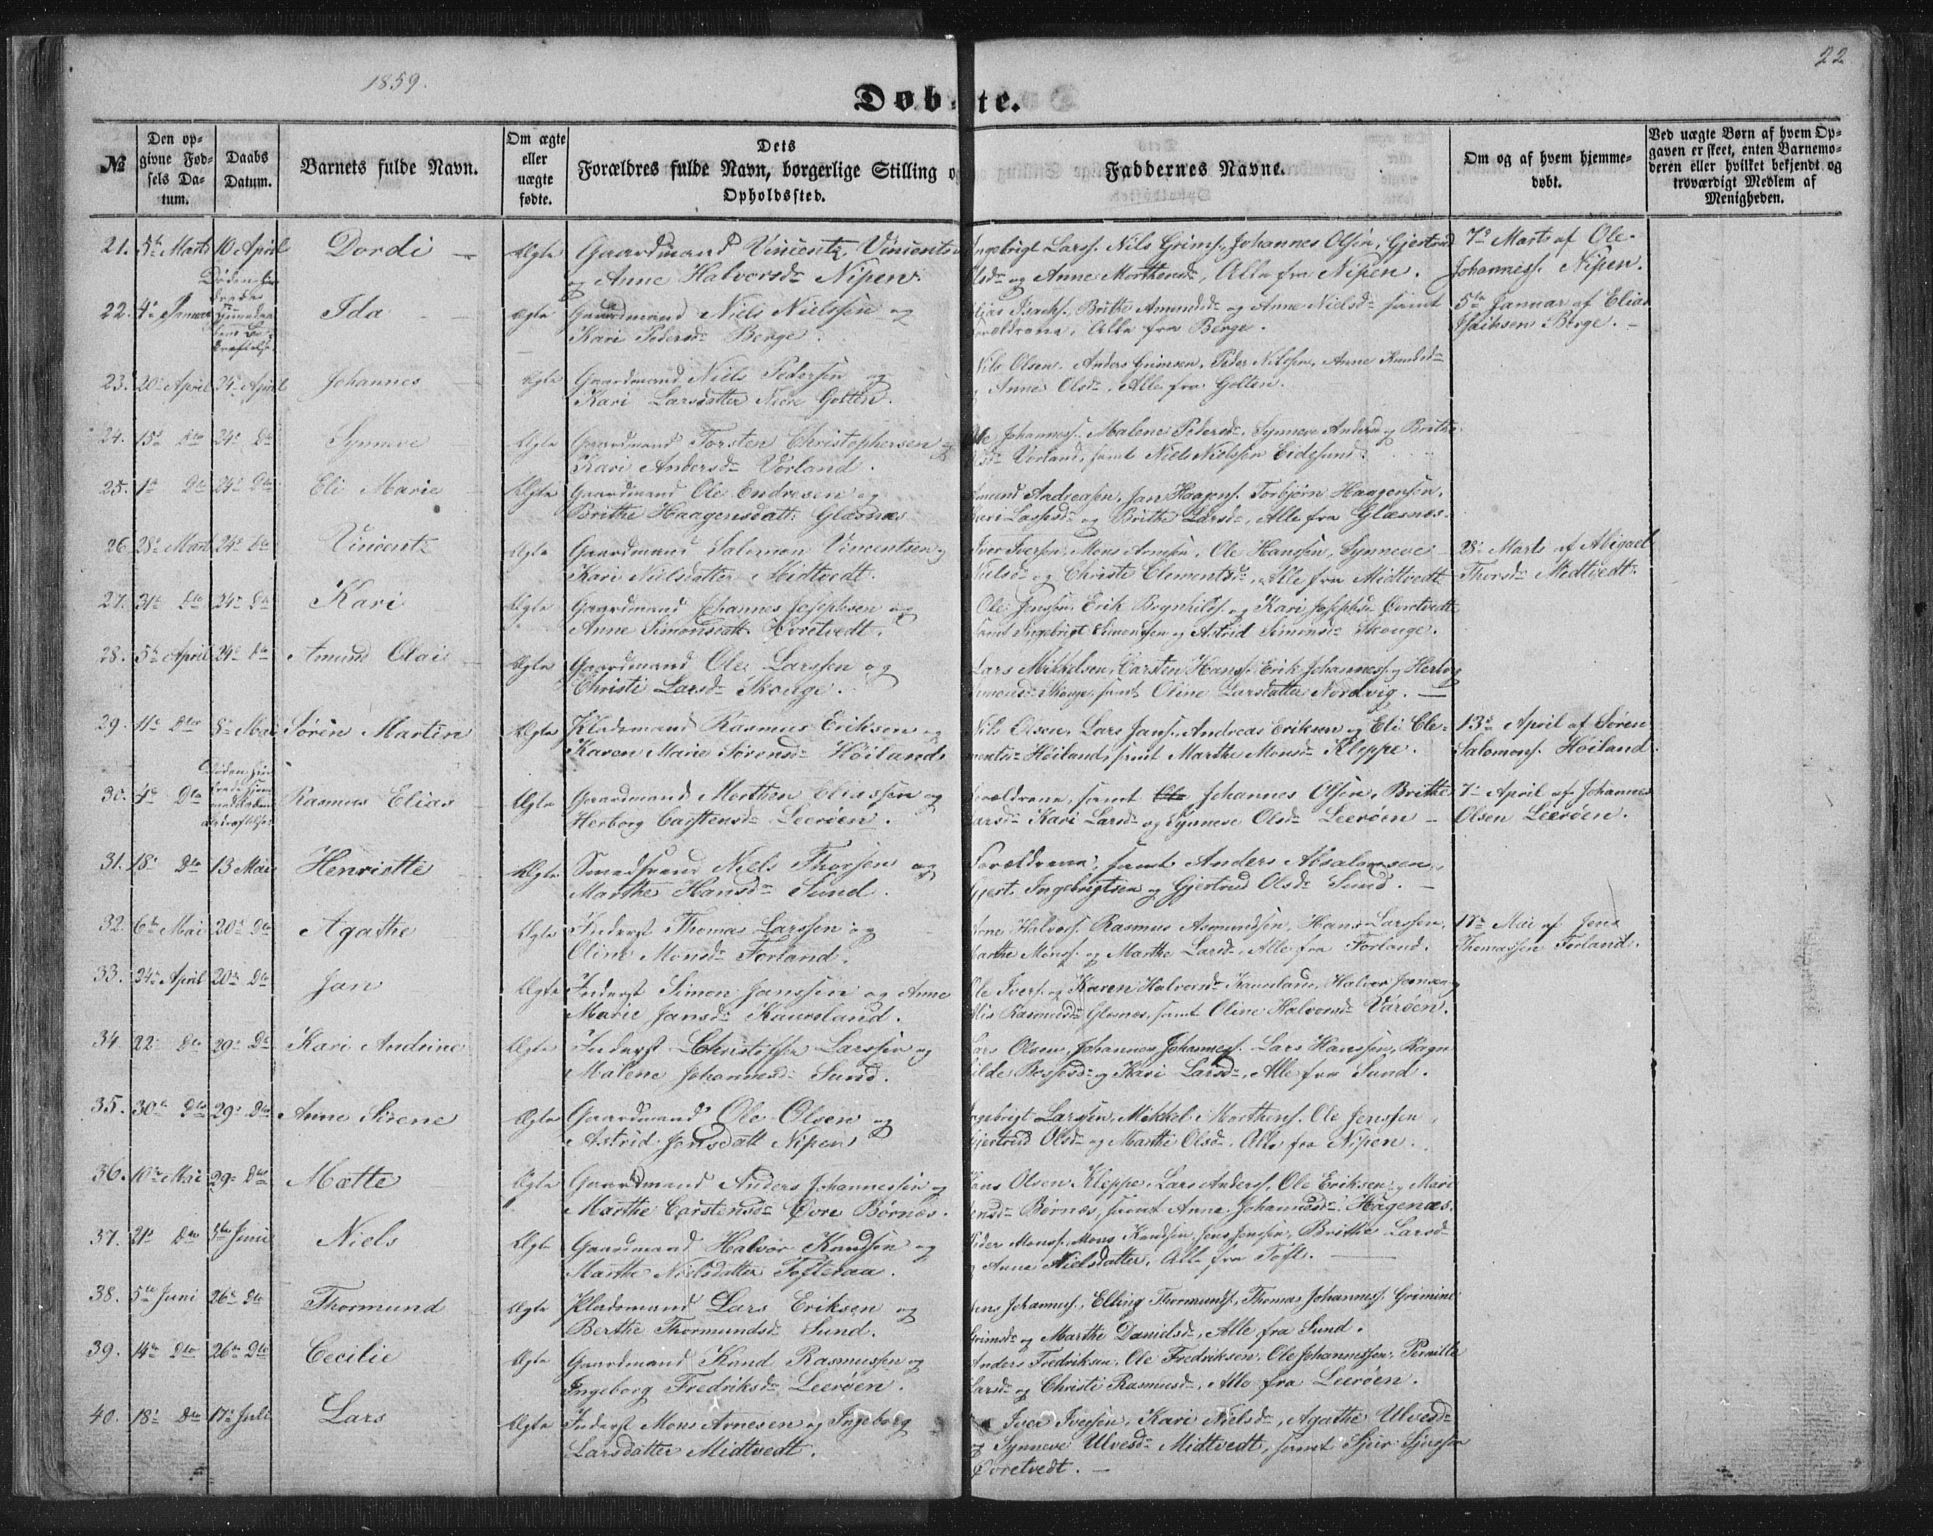 1859.
22
Døbte.
№
Den opgivne Fødsels Datum.
Daabs Datum.
Barnets fulde Navn.
Om ægte eller uægte fødte.
Dets Forældres fulde Navn, borgerlige Stilling og Opholdssted.
Faddernes Navne.
Om og af hvem hjemmedøbt.
Ved uægte Børn af hvem Opgaven er skeet, enten Barnemoderen eller hvilket bekjendt og troværdigt Medlem af Menigheden.
21. 5te Marts 10 April Dordi Ægte Gaardmand Vincentz Vincents
og Anne Halvorsd. Nipen.
Ingebrigt Larss. Nils Grims. Johannes Olsen, Gjertrud
Olsd. og Anne Morthensd., Alle fra Nipen.
7de Marts af Ole
Johanness. Nipen.
22. 4de Januar Ida Ægte Gaardmand Niels Nielssen og
Kari Pedersd. Berge.
Elias Isachs. Brithe Amundsd. og Anne Nielsd. samt
Forældrene, Alle fra Berge.
5te Januar af Elias
Isachsen Berge.
23. 20de April 24de April Johannes Ægte Gaardmand Niels Pedersen og
Kari Larsdatter Nere Golten.
Nils Olsen, Anders Grimsen, Peder Nilssen, Anne Knudsd.
og Anne Olsd., Alle fra Golten.
24. 15de Dto 24de Dto Synneve Ægte Gaardmand Torsten Christophersen og
Kari Andersd. Vorland.
Ole Johanness. Malene Pedersd. Synneve Andersd. og Brithe
Olsd. Vorland, samt Niels Nielssen Eidesund.
25. 1de Dto 24de Dto Eli Marie Ægte Gaardmand Ole Endresen og
Brithe Haagensdatt. Glæsnæs
Amund Andreasen, Jan Haagens. Torbjørn Haagensen,
Kari Lassesd. og Brithe Larsd., Alle fra Glæsnæs.
26. 28de Marts 24de Dto Vincentz Ægte Gaardmand Salomon Vincentsen og
Kari Nielsdatter Midtvedt.
Iver Iversen, Mons Arnesen, Ole Hanssen, Synneve
Nielsd. og Christi Clementsd., Alle fra Midtvedt
28de Marts af Abigael
Thorsd. Midtvedt.
27. 31te Dto 24de Dto Kari Ægte Gaardmand Johannes Josephsen og
Anne Simonsdatt. Hvretvedt.
Ole Jenssen, Erik Brynhilds. og Kari Josephsd. Qvretvedt
samt Ingebrigt Simonsen og Astrid Simonsd. Skouge.
28. 5te April 24de Dto Amund Olai Ægte Gaardmand Ole Larssen og
Christi Larsd. Skouge.
Lars Mikkelsen, Carsten Hans. Erik Johanness. og Herborg
Skouge, samt Oline Larsdatter Nordvig.
29. 11te Dto 8de Mai Søren Martin Ægte Pladsmand Rasmus Eriksen og
Karen Marie Sørensd. Høiland
Nils Olsen, Lars Jans. Andreas Eriksen og Eli Clementsd.
Høiland, samt Marthe Monsd. Kleppe.
13de April af Søren
Salomons. Høiland.
30. 4de Dto Rasmus Elias Ægte Gaardmand Morthen Eliassen og
Herborg Carstensd. Leerøen.
Forældrene, samt Johannes Olsen, Brithe
Larsd. Kari Larsd. og Synneve Olsd. Leerøen
7de April af Johannes
Olsen Leerøen.
31. 18de Dto 13 Mai Henriette Ægte Niels Thorsen og
Marthe Hansd. Sund.
Forældrene, samt Anders Absalonsen,
Gjert Ingebrigtsen og Gjertrud Olsd. Sund.
32. 6te Mai 20de Dto Agathe Ægte Inderst Thomas Larssen og
Oline Monsd. Forland.
Halvors. Rasmus Asmundsen, Hans Larssen,
Marthe Monsd. og Marthe Larsd., Alle fra Forland.
Mai af Jens
Thomassen Forland.
33. 24de April 20de Dto Jan Ægte Inderst Simon Janssen og Anne
Marie Jansd. Kausland.
Ole Ivers. og Karen Halvorsd. Kausland, Halvor
Rasmusd. Glesnæs, samt Oline Halvorsd. Varøen.
34. 22de Dto 29de Dto Kari Andrine Ægte Inderst Christoffer Larssen og
Malene Johannesd. Sund.
Lars Olsen, Johannes Johanness. Lars Hanssen, Ragnilde
og Kari Larsd., Alle fra Sund.
35. 30te Dto 29de Dto Anne Sirene Ægte Gaardmand Ole Olsen og
Astrid Jonsdatt. Nipen
Ingebrigt Larssen, Mikkel Morthens. Ole Jenssen,
Gjertrud Olsd. og Marthe Olsd., Alle fra Nipen.
36. 10de Mai 29de Dto Mætte Ægte Gaardmand Anders Johannessen og
Marthe Carstensd. Øvre Børnes.
Hans Olsen Kleppe, Lars Anders. Ole Eriksen og Mari
Børnæs, samt Anne Johannesd. Hagenæs.
37. 21de Dto 5te Juni Niels Ægte Gaardmand Halvor Knudsen og
Marthe Nielsdatter Tofteraa.
Peder Mons. Mons Knudsen, Jens Jenssen, Brithe Larsd.
og Anne Nielsdatter, Alle fra Toft.
38. 5te Juni 26de Dto Thormund Ægte Pladsmand Lars Eriksen og
Berthe Thormundsd. Sund.
Jens Johanness. Elling Thormunds. Thomas Johanness. Grimine
Grimsd. og Marthe Danielsd., Alle fra Sund.
39. 14de Dto 26de Dto Cecilie Ægte Gaardmand Knud Rasmussen og
Ingeborg Fredriksd. Leerøen.
Anders Fredriksen, Ole Fredriksen, Ole Johannessen, Pernille
Larsd. og Christi Rasmusd., Alle fra Leerøen.
40. 18de Dto 17de Juli Lars Ægte Inderst Mons Arnesen og Ingeborg
Larsdatter Midtvedt.
Iver Iversen, Kari Nielsd., Agathe Ulvesd.
og Synneve Ulvesd. Midtvedt, samt Sjur Sjurssen
Qvretvedt.